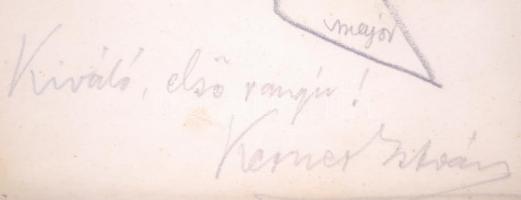 major
Kiváló, első rangú!
Kerner István